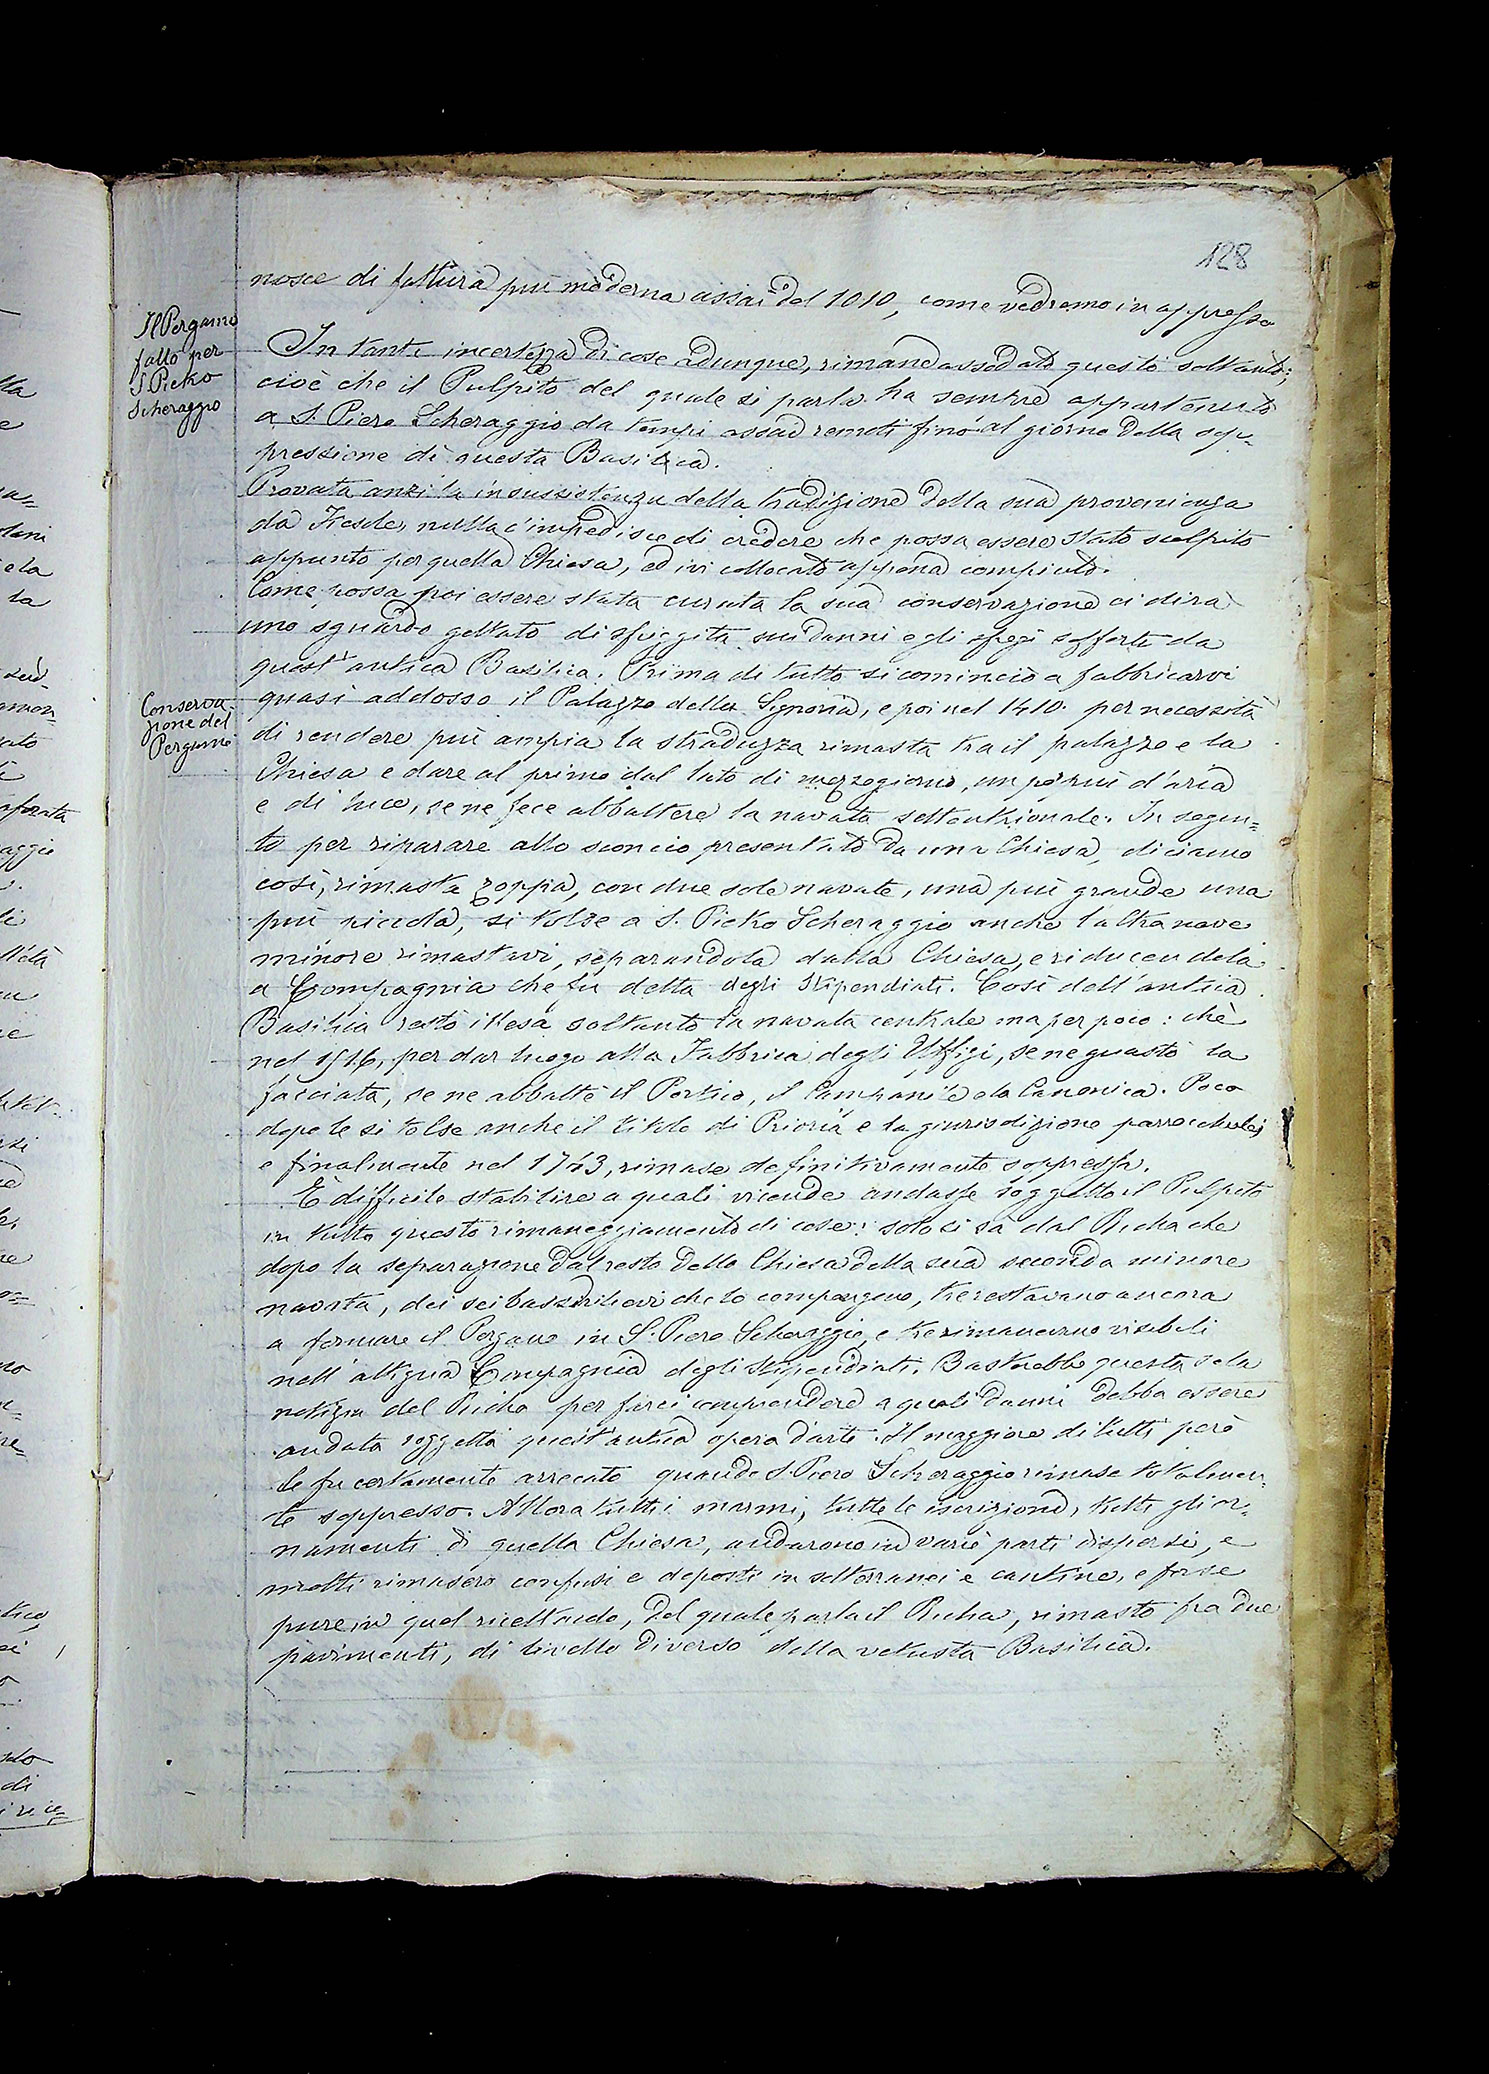 128
nosce di fattura più moderna assai del 1010, come vedremo in appresso
Il Pergamo
fatto per
S Pietro
Scheraggio
In tanta incertezza di cose adunque, rimane assodato questo soltanto;
cioè che il Pulpito del quale si parla ha sempre appartenuto
a S. Piero Scheraggio da tempi assai remoti fino al giorno della sop-
pressione di questa Basilica.
Provata anzi la insussistenza della tradizione della sua provenienza
da Fiesole, nulla c'impedisce di credere che possa essere stato scolpito
appunto per quella Chiesa, ed ivi collocato appena compiuto.
Come possa poi essere stata curata la sua conservazione ci dirà
uno sguardo gettato di sfuggita sui danni e gli sfregi sofferti da
quest'antica Basilica. Prima di tutto si cominciò a fabbricarvi
Conserva-
zione del
Pergamo
quasi addosso il Palazzo della Signoria, e poi nel 1410 per necessità
di rendere più ampia la straduzza rimasta tra il palazzo e la
Chiesa e dare al primo dal lato di mezzogiorno, un pò più d'aria
e di luce, se ne fece abbattere la navata settentrionale. In segui=
to per riparare allo sconcio presentato da una Chiesa, diciamo
così, rimasta zoppa, con due sole navate, una più grande una
più piccola, si tolse a S. Pietro Scheraggio anche l'altra nave
minore rimastavi, separandola dalla Chiesa, e riducendola
a Compagnia che fu detta degli Stipendiati. Così dell'antica
Basilica restò illesa soltanto la navata centrale ma per poco: chè
nel 1546, per dar luogo alla Fabbrica degli Uffizi, se ne guastò la
facciata, se ne abbattè il Portico, il Campanile e la Canonica. Poco
dopo le si tolse anche il titolo di Prioria e la giurisdizione parrocchiale;
e finalmente nel 1743, rimase definitivamente soppressa.
È difficile stabilire a quali vicende andasse soggetto il Pulpito
in tutto questo rimaneggiamento di cose: solo si sà dal Richa che
dopo la separazione dal resto della Chiesa della sua seconda minore
navata, dei sei bassorilievi che lo compongono, tre restavano ancora
a formare il Pergamo in S. Piero Scheraggio, e tre rimanevano visibili
nell'attigua Compagnia degli Stipendiati. Basterebbe questa sola
notizia del Richa per farci comprendere a quali danni debba essere
andata soggetta quest'antica opera d'arte. Il maggiore di tutti però
le fu certamente arrecato quando S. Piero Scheraggio rimase totalmen-
te soppresso. Allora tutti i marmi, tutte le iscrizioni, tutti gli or-
namenti di quella Chiesa, andarono in varie parti dispersi, e
molti rimasero confusi e deposti in sotterranei e cantine, e forse
pure in quel ricettacolo, del quale parla il Richa, rimasto fra due
pavimenti, di livello diverso della vetusta Basilica.